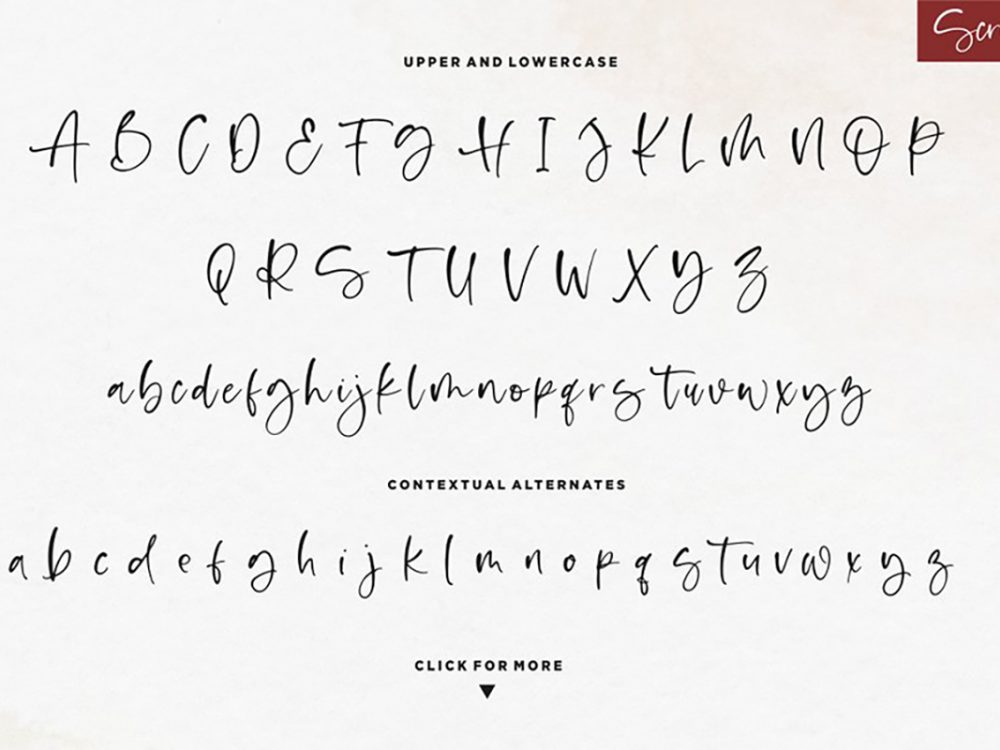 Scr
UPPER AND LOWERCASE
A B C D E F G H I J K L M N O P
Q R S T U V W X Y Z
abcdefghijklmnopqrstuvwxyz
CONTEXTUAL ALTERNATES
a b c d e f g h i j k l m n o p q s t u v w x y z
CLICK FOR MORE